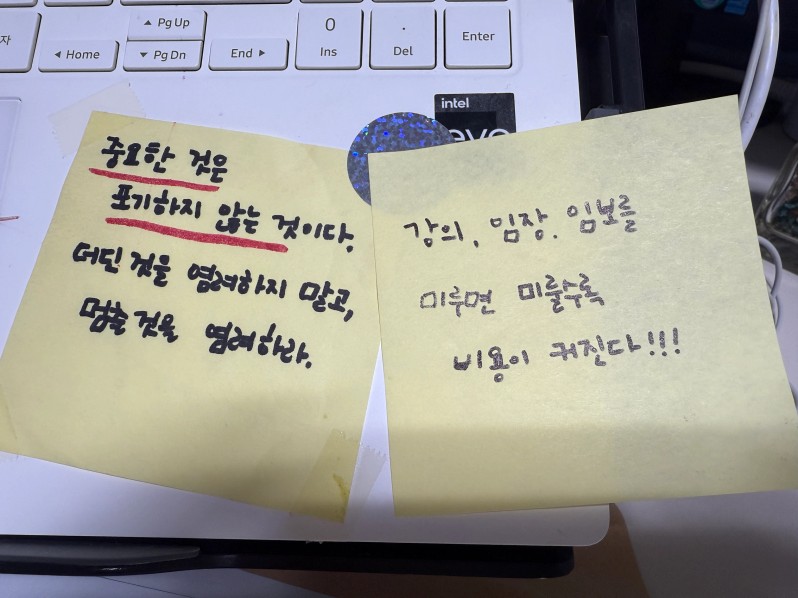 자
Pg Up
Home
Pg Dn
End
0
Ins
.
Del
Enter
intel
evo
중요한 것은
포기하지 않는 것이다.
더딘 것을 염려하지 말고,
멈출 것을 염려하라.
강의, 임장, 임보를
미루면 미룰수록
비용이 커진다!!!